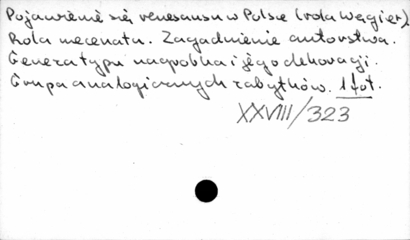 Pojawienie się renesansu w Polsce (rola Węgier)
Rola mecenatu. Zagadnienie autorstwa.
Geneza typu nagrobka i jego dekoracji.
Grupa analogicznych zabytków. 1 fot.
XXVIII/323